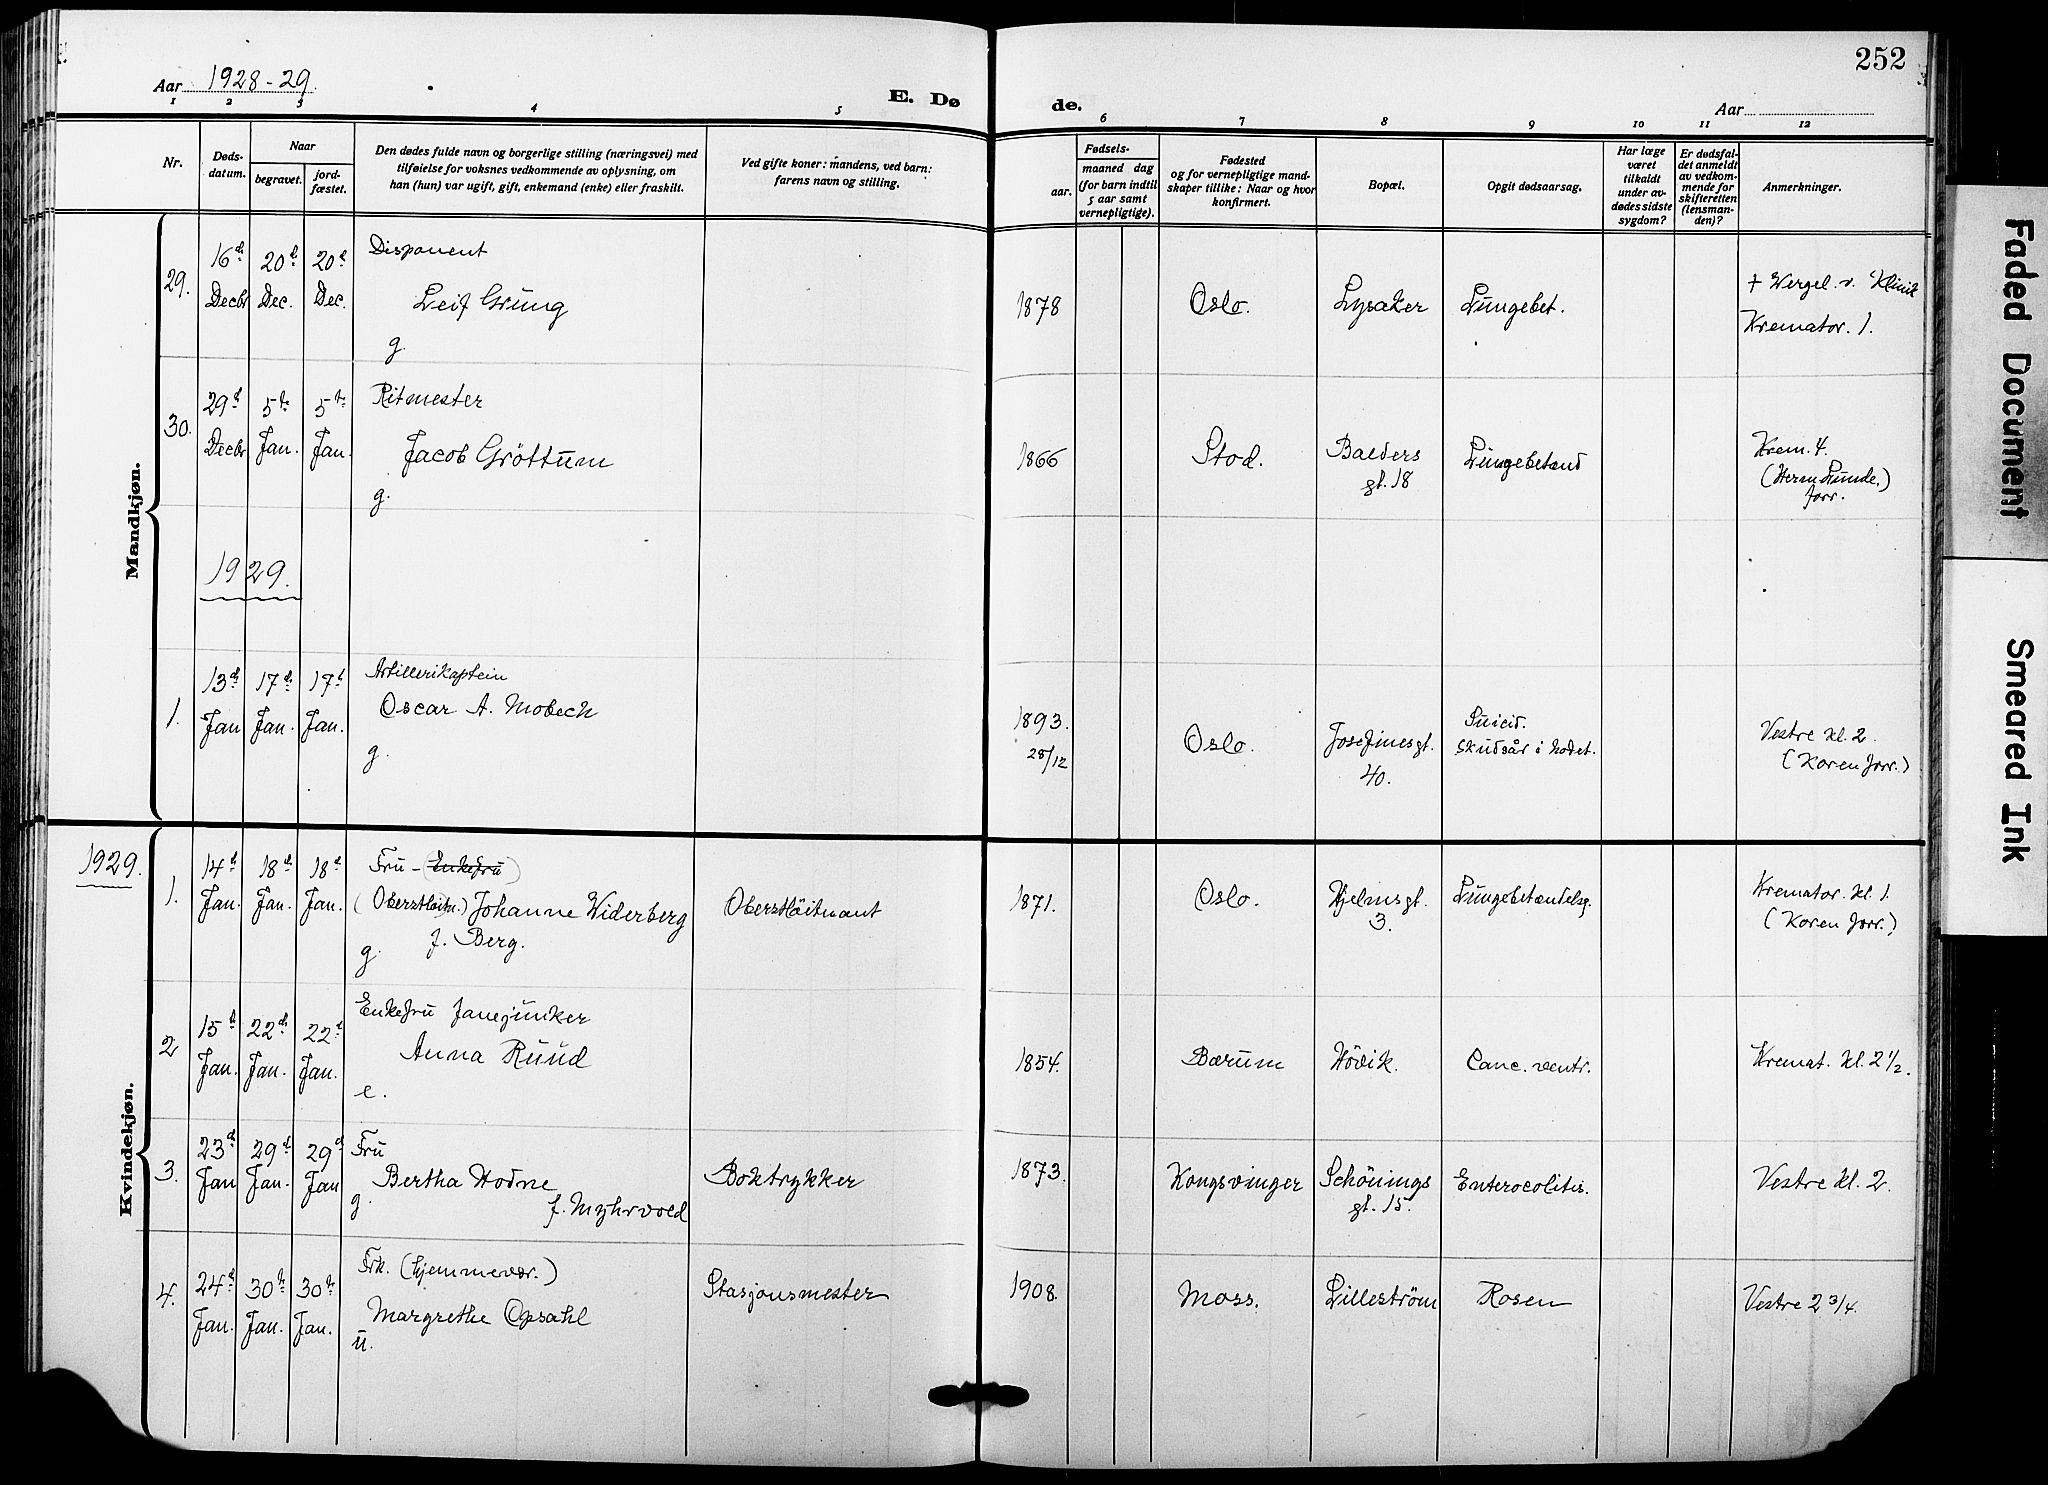 252
Aar 1928-29.
E. Dø
de.
Aar
1 2 3 4 5
6 7 8 9 10 11 12
Nr.
Døds-
datum.
Naar
begravet.
jord-
fæstet.
Den dødes fulde navn og borgerlige stilling (næringsvei) med
tilføielse for voksnes vedkommende av oplysning, om
han (hun) var ugift, gift, enkemand (enke) eller fraskilt.
Ved gifte koner: mandens, ved barn:
farens navn og stilling.
Fødsels-
aar.
maaned dag
(for barn indtil
5 aar samt
vernepligtige).
Fødested
og for vernepligtige mand-
skaper tillike: Naar og hvor
konfirmert.
Bopæl.
Opgit dødsaarsag.
Har læge
været
tilkaldt
under av-
dødes sidste
sygdom?
Er dødsfal-
det anmeldt
av vedkom-
mende for
skifteretten
(lensman-
den)?
Anmerkninger.
Mandkjøn.
29.
16d Decbr
20d Dec.
20d Dec.
Disponent
Leif Grüng
g.
1878
Oslo.
Lysaker
Lüngebet.
+ Wergel. v. Klinik
Kremator. 1.
30.
29d Decbr
5te Jan.
5te Jan.
Ritmester
Jacob Gröttüm
g.
1866
Stod.
Balders
gt. 18
Lüngebetænd
Krem. 4.
(Herm Lünde.)
forr.
1929.
1.
13d Jan
17d Jan.
17d Jan.
Artillerikaptein
Oscar A. Mobech
g.
1893.
28/12
Oslo.
Josefinesgt.
40.
Süicid.
Skudsår i hodet.
Vestre kl. 2
(Koren forr.)
Kvindekjøn.
1929.
1.
14d Jan.
18d Jan.
18d Jan.
Frü - (Enkefrü)
(Oberstlöitn.) Johanne Widerberg
f. Berg.
g.
Oberstlöitnant
1871.
Oslo.
Hjelmsgt.
3.
Lüngebetændelse.
Kremator. kl. 1.
(Koren forr.)
2
15d Jan.
22d Jan.
22d Jan.
Enkefrü Fanejünker
Anna Rüüd
e.
1854.
Bærüm
Hövik.
Canc. ventr.
Kremat. kl. 2 1/2.
3.
23d Jan
29d Jan.
29d Jan
Frü
Bertha Hodne
g.
f. Myhrvold
Boktrykker
1873.
Kongsvinger
Schönings
gt. 15.
Enterocolitis.
Vestre kl. 2.
4.
24d Jan.
30te Jan.
30te Jan.
Frk. (hjemmevær.)
Margrethe Opsahl
ü.
Stasjonsmester
1908.
Moss.
Lilleström
Rosen
Vestre 2 3/4.
Faded Document
Smeared Ink